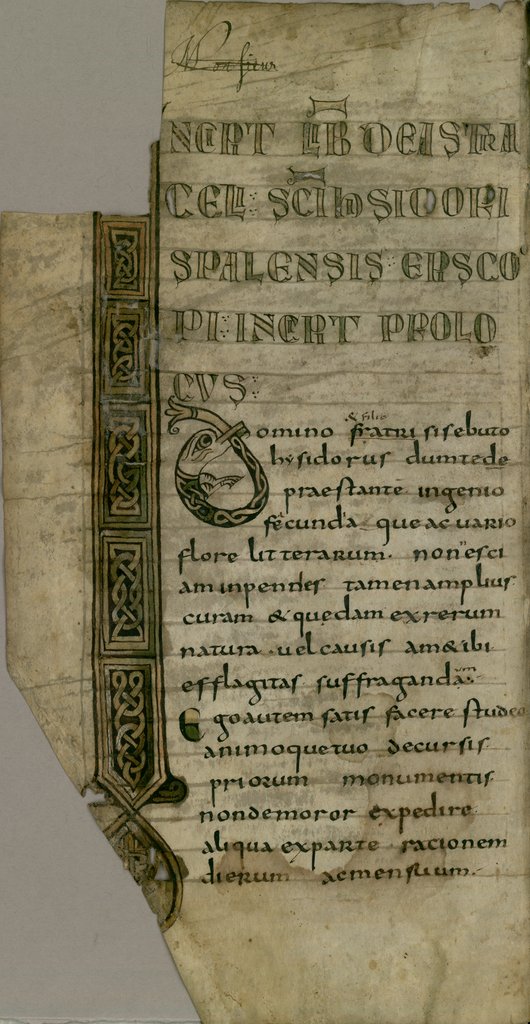 Monsieur
INCIPIT LIB DE ASTRA
CELI: SCI hYSIDORI
SPALENSIS EPSCO
PI: INCIPIT PROLO
GUS:
& filio
Domino fratri sisebuto
hysidorus dum te de
praestante ingenio
fecunda que ac uario
flore litterarum. non esci
am inpendes tamen amplius
curam & quedam ex rerum
natura. uel causis am&ibi
efflagitas suffragandam
Ego autem satis facere studeo
animo que tuo decursis
priorum monumentis
non demoror expedire
aliqua ex parte racionem
dierum ac mensium.